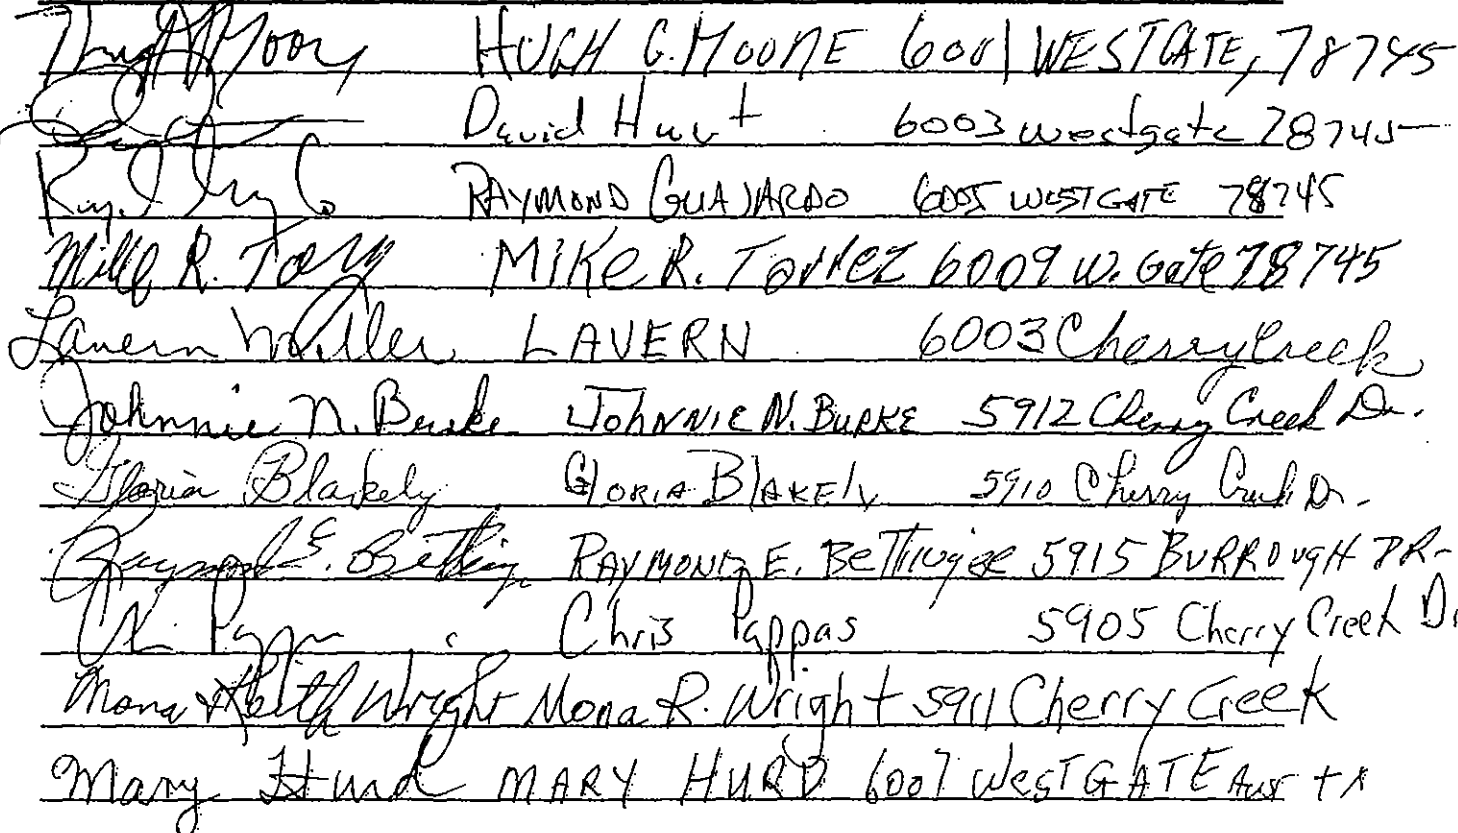 Hugh G. Moore HUGH G. MOORE 6001 WESTGATE, 78745
David Hurt 6003 westgate 78745
RAYMOND GUAJARDO 6005 WESTGATE 78745
Mike R. Torrez MIKE R. Torrez 6009 W. Gate 78745
Lavern Miller LAVERN 6003 Cherry Creek
Johnnie N. Burke JOHNNIE N. BURKE 5912 Cherry Creek Dr.
Gloria Blakely GLORIA BLAKELY 5910 Cherry Creek Dr.
Raymond E. RAYMOND E. 5915 BURROUGH DR.
Chris Pappas Chris Pappas 5905 Cherry Creek Dr
Mona & Keith Wright Mona R. Wright 5911 Cherry Creek
Mary Hurd MARY HURD 6007 WESTGATE Aus tx